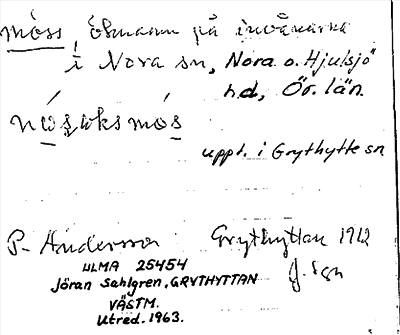 moss, öknamn på invånarna
i Nora sn, Nora o. Hjulsjö
hd, Ör. län.
uppt. i Grythytte sn
P. Andersson Grythyttan 1912
ULMA 25454
Jöran Sahlgren, GRYTHYTTAN
VÄSTM.
Utred. 1963.